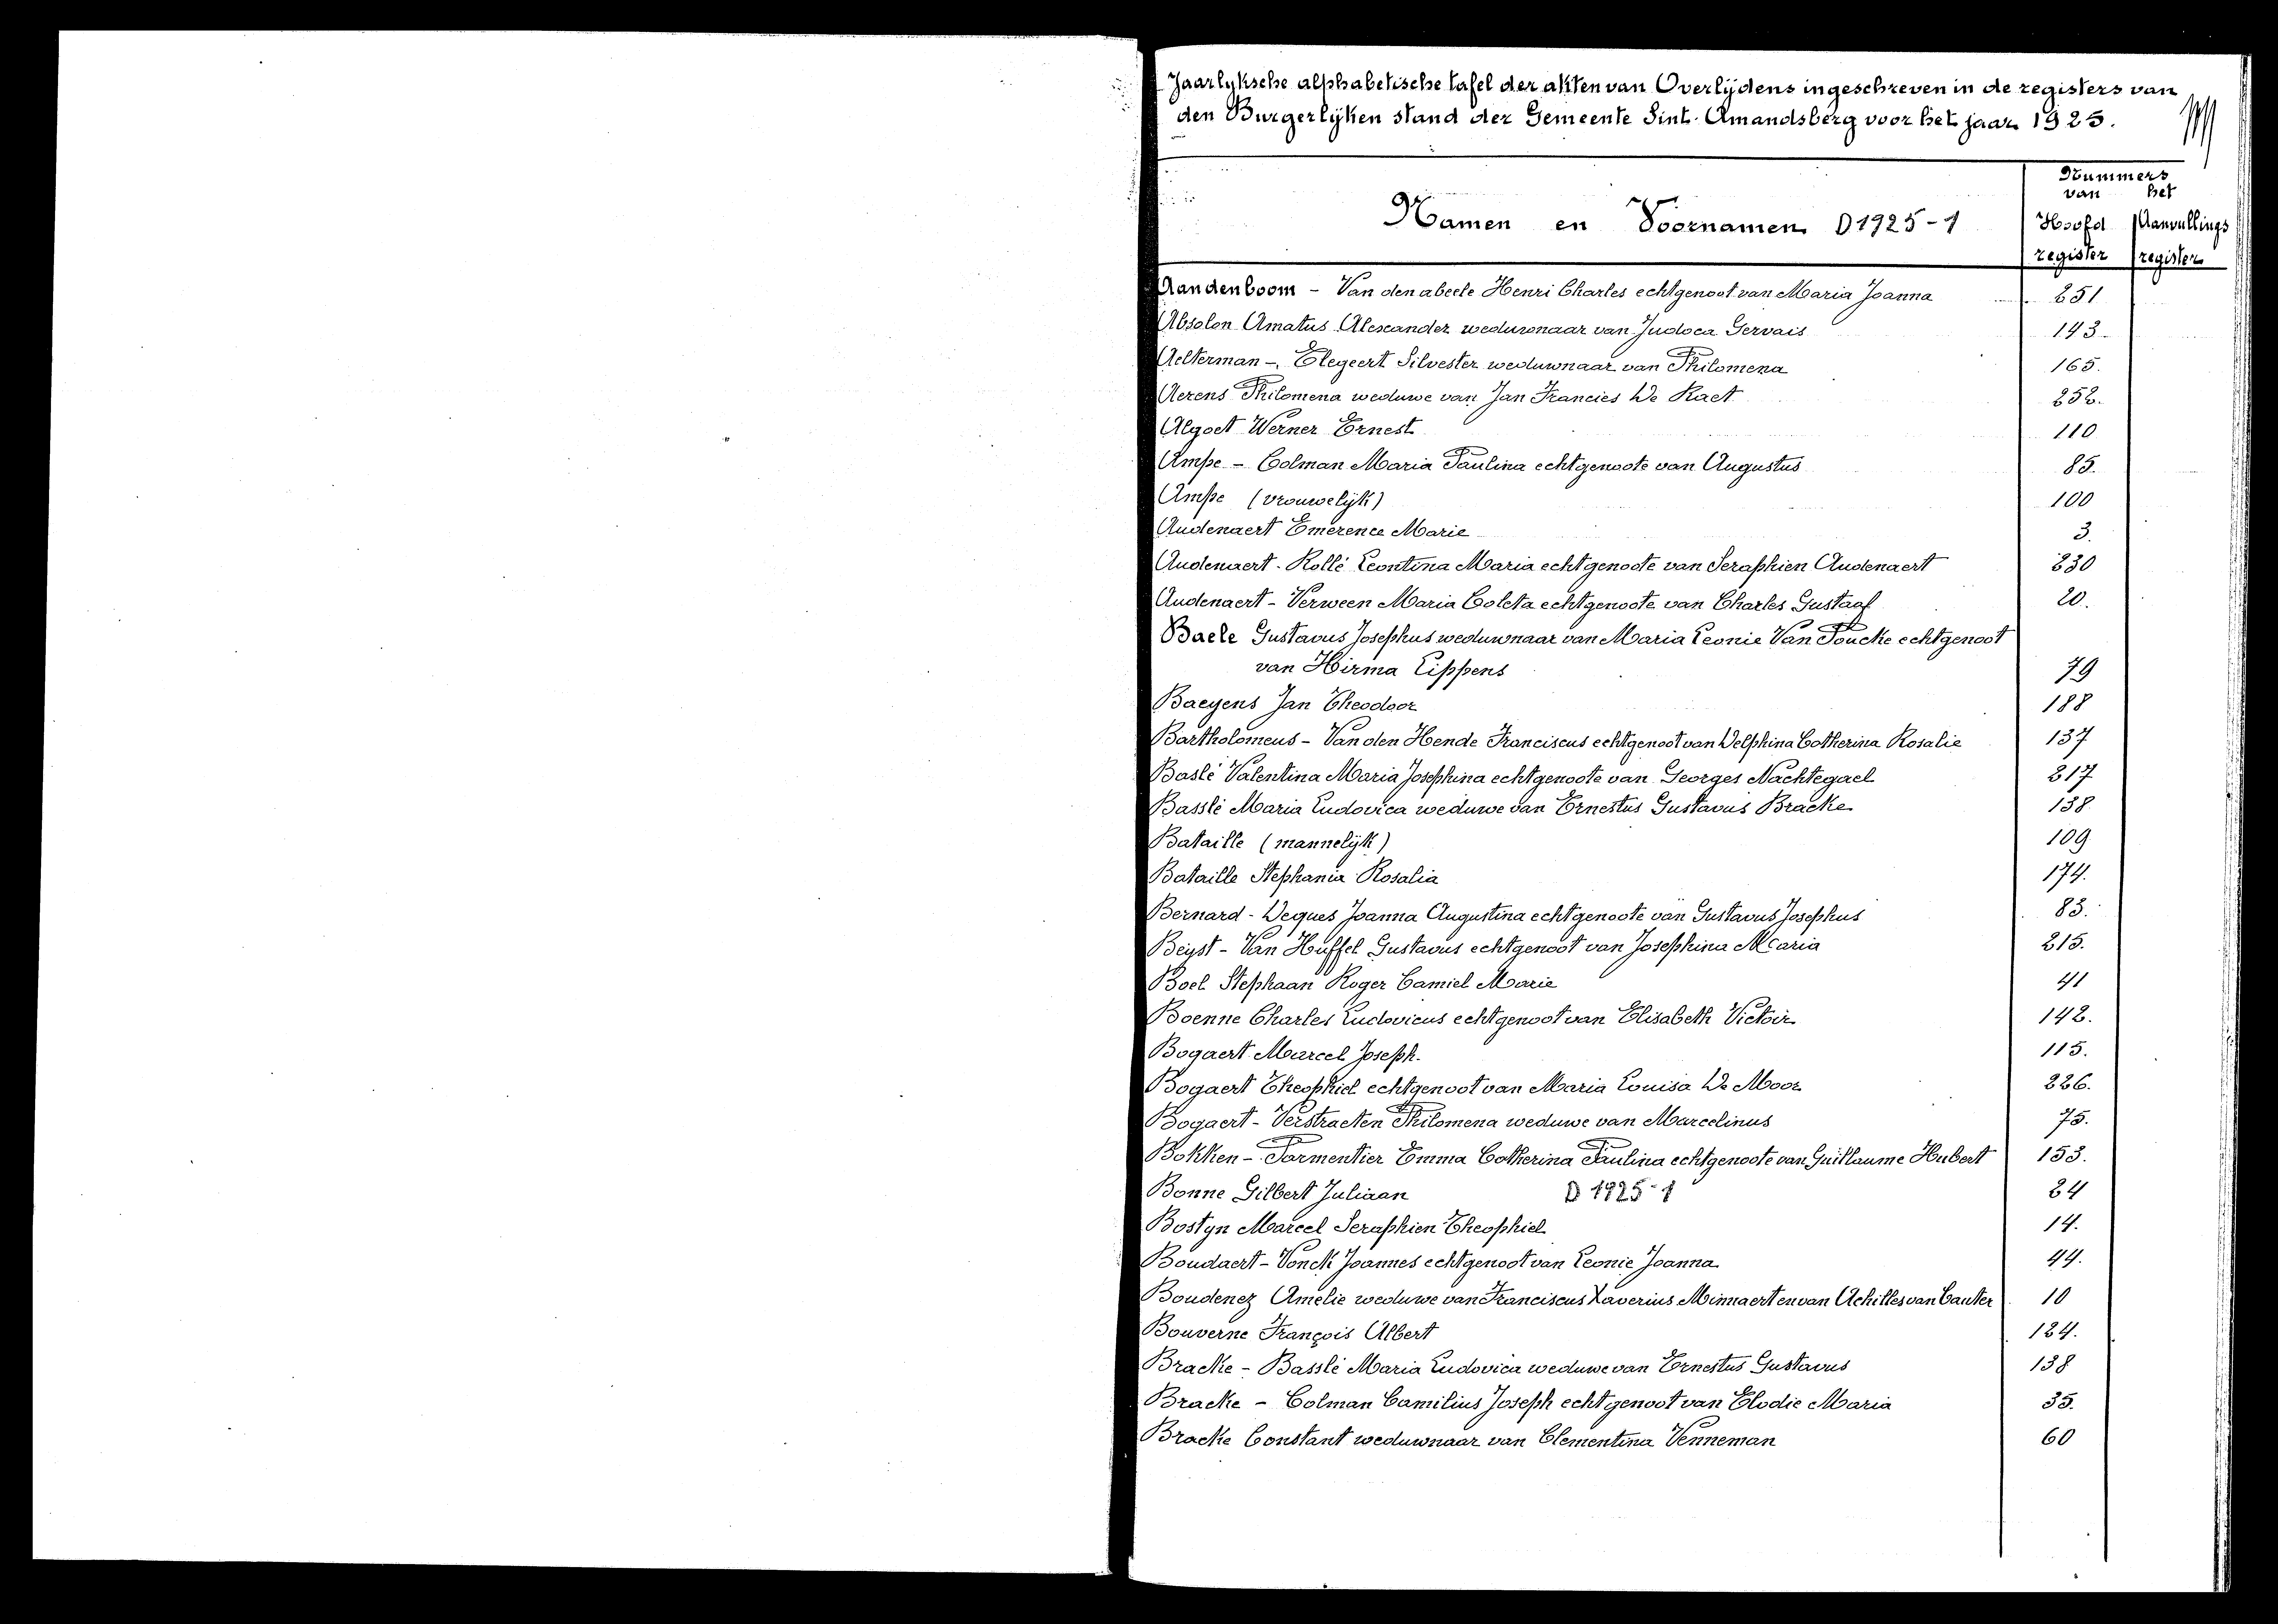 Jaarlyksche alphabetische tafel der akten van Overlijdens ingeschreven in de registers van
den Burgerlijken stand der Gemeente Sint. Amandsberg voor het jaar 1925.
Nummers
van het
Namen en Voornamen D 1925-1 Hoofd Aanvullings
register register
Aandenboom - Van den abeele Henri Charles echtgenoot van Maria Joanna 251
Absolon Amatus Alexander weduwnaar van Judoca Gervais 143
Aelterman - Elegeert Silvester weduwnaar van Philomena 165.
Aerens Philomena weduwe van Jan Francies De Raet 252.
Algoet Werner Ernest 110
Ampe - Colman Maria Paulina echtgenoote van Augustus 85.
Ampe (vrouwelijk) 100
Audenaert Emerence Marie 3.
Audenaert - Rollé Leontina Maria echtgenoote van Seraphien Audenaert 230
Audenaert - Verween Maria Coleta echtgenoote van Charles Gustaaf 20.
Baele Gustavus Josephus weduwnaar van Maria Leonie Van Poucke echtgenoot
van Hirma Lippens 79
Baeyens Jan Theodoor 188
Bartholomeus - Van den Hende Franciscus echtgenoot van Delphina Catherina Rosalie 137
Baslé Valentina Maria Josephina echtgenoote van Georges Nachtegael 217
Basslé Maria Ludovica weduwe van Ernestus Gustavus Bracke 138
Bataille (mannelijk) 109
Bataille Stephania Rosalia 174.
Bernard - Deques Joanna Augustina echtgenoote van Gustavus Josephus 83.
Beyst - Van Huffel Gustavus echtgenoot van Josephina Maria 215.
Boel Stephaan Roger Camiel Marie 41
Boenne Charles Ludovicus echtgenoot van Elisabeth Victoir 142.
Bogaert Marcel Joseph. 115.
Bogaert Theophiel echtgenoot van Maria Louisa De Moor 226.
Bogaert - Verstraeten Philomena weduwe van Marcelinus 75.
Bokken - Parmentier Emma Catherina Paulina echtgenoote van Guillaume Hubert 153.
Bonne Gilbert Juliaan D 1925-1 24
Bostyn Marcel Seraphien Theophiel 14.
Boudaert - Vonck Joannes echtgenoot van Leonie Joanna 44.
Boudenez Amelie weduwe van Franciscus Xaverius Minnaert en van Achilles van Cauter 10
Bouverne François Albert 124.
Bracke - Basslé Maria Ludovica weduwe van Ernestus Gustavus 138
Bracke - Colman Camilius Joseph echtgenoot van Elodie Maria 35.
Bracke Constant weduwnaar van Clementina Venneman 60